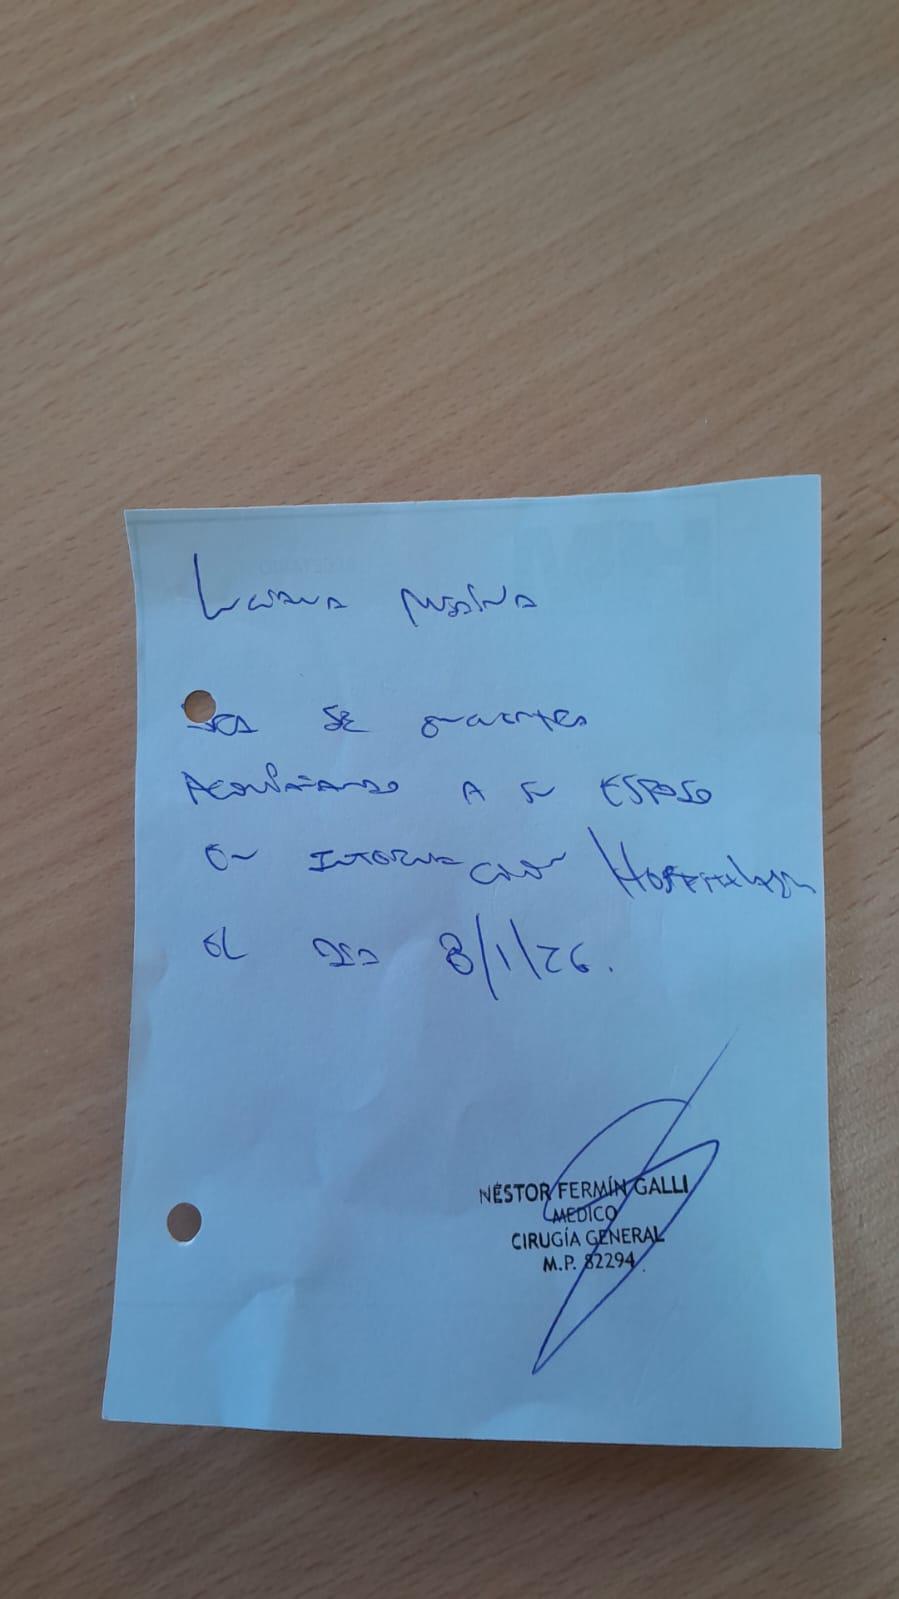 Luciana
se encuentra
Acompañando A su Esposo
en Internacion Hospitalaria
el dia 8/1/26.
NÉSTOR FERMÍN GALLI
MEDICO
CIRUGÍA GENERAL
M.P. 82294